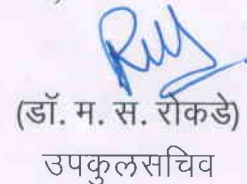 (डॉ. म. स. रोकडे)
उपकुलसचिव